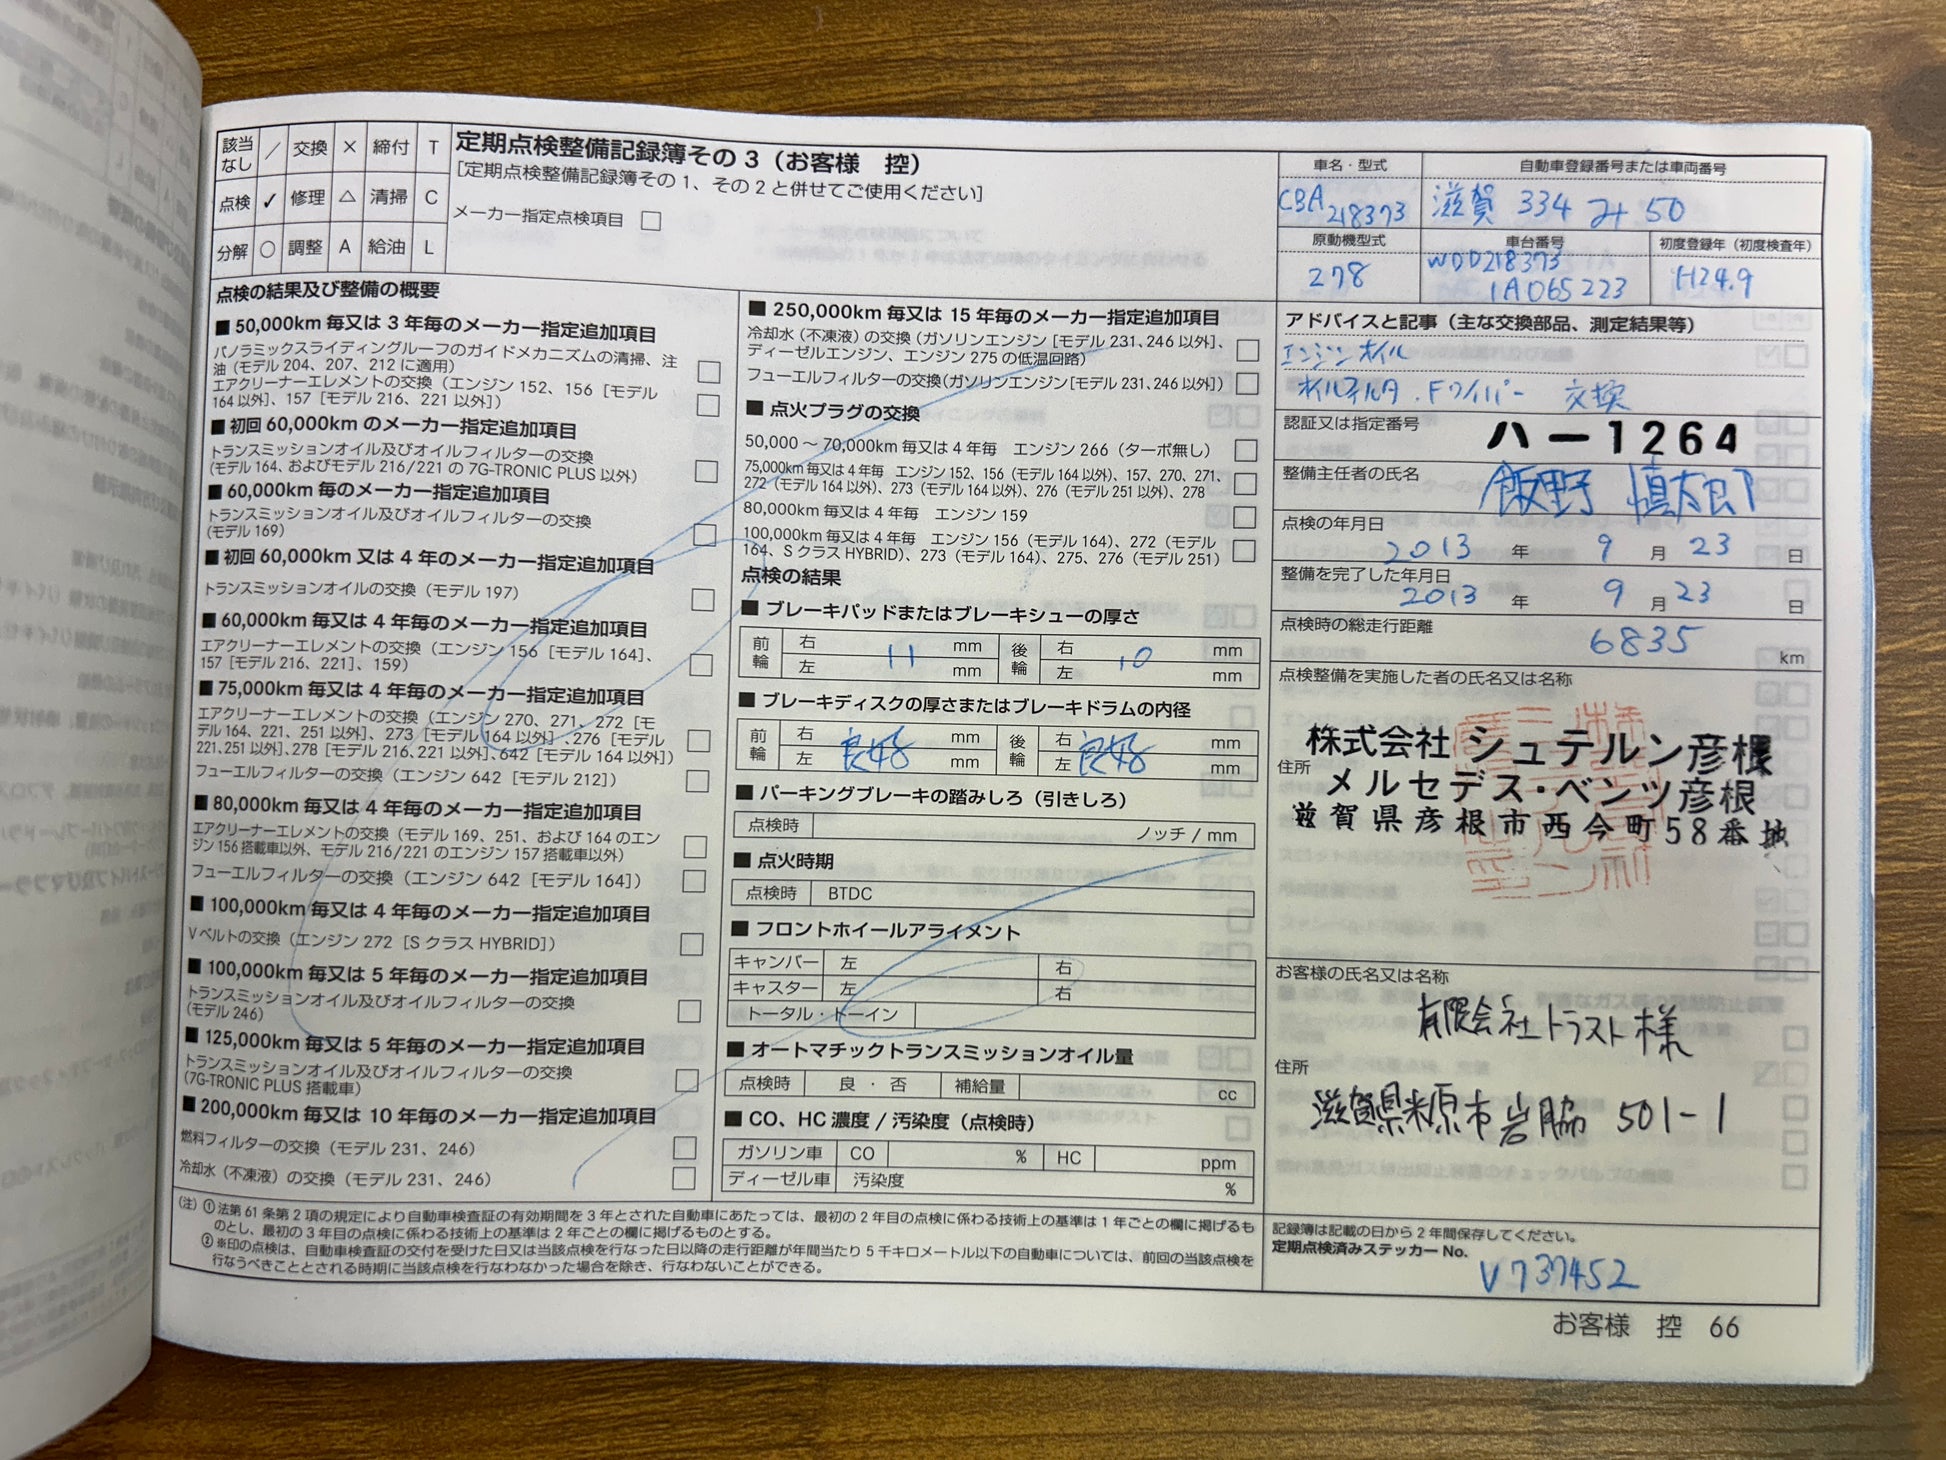 該当なし ／ 交換 × 締付 T
点検 ✓ 修理 △ 清掃 C
分解 ○ 調整 A 給油 L
定期点検整備記録簿その3（お客様　控）
[定期点検整備記録簿その1、その2と併せてご使用ください]
メーカー指定点検項目 □
車名・型式
CBA
218373
自動車登録番号または車両番号
滋賀 334 み 50
原動機型式
278
車台番号
WDD218373
1A065223
初度登録年（初度検査年）
H24.9
点検の結果及び整備の概要
■ 50,000km 毎又は 3 年毎のメーカー指定追加項目
パノラミックスライディングルーフのガイドメカニズムの清掃、注
油（モデル 204、207、212 に適用） □
エアクリーナーエレメントの交換（エンジン 152、156［モデル
164 以外］、157［モデル 216、221 以外］） □
■ 初回 60,000km のメーカー指定追加項目
トランスミッションオイル及びオイルフィルターの交換
(モデル 164、およびモデル 216/221 の 7G-TRONIC PLUS 以外) □
■ 60,000km 毎のメーカー指定追加項目
トランスミッションオイル及びオイルフィルターの交換
(モデル 169) □
■ 初回 60,000km 又は 4 年毎のメーカー指定追加項目
トランスミッションオイルの交換（モデル 197） □
■ 60,000km 毎又は 4 年毎のメーカー指定追加項目
エアクリーナーエレメントの交換（エンジン 156［モデル 164］、
157［モデル 216、221］、159） □
■ 75,000km 毎又は 4 年毎のメーカー指定追加項目
エアクリーナーエレメントの交換（エンジン 270、271、272［モ
デル 164、221、251 以外］、273［モデル 164 以外］、276［モデル
221、251 以外］、278［モデル 216、221 以外］、642［モデル 164 以外］） □
フューエルフィルターの交換（エンジン 642［モデル 212］） □
■ 80,000km 毎又は 4 年毎のメーカー指定追加項目
エアクリーナーエレメントの交換（モデル 169、251、および 164 のエン
ジン 156 搭載車以外、モデル 216/221 のエンジン 157 搭載車以外） □
フューエルフィルターの交換（エンジン 642［モデル 164］） □
■ 100,000km 毎又は 4 年毎のメーカー指定追加項目
V ベルトの交換（エンジン 272［S クラス HYBRID］） □
■ 100,000km 毎又は 5 年毎のメーカー指定追加項目
トランスミッションオイル及びオイルフィルターの交換
(モデル 246) □
■ 125,000km 毎又は 5 年毎のメーカー指定追加項目
トランスミッションオイル及びオイルフィルターの交換
(7G-TRONIC PLUS 搭載車) □
■ 200,000km 毎又は 10 年毎のメーカー指定追加項目
燃料フィルターの交換（モデル 231、246） □
冷却水（不凍液）の交換（モデル 231、246） □
■ 250,000km 毎又は 15 年毎のメーカー指定追加項目
冷却水（不凍液）の交換（ガソリンエンジン［モデル 231、246 以外］、
ディーゼルエンジン、エンジン 275 の低温回路） □
フューエルフィルターの交換（ガソリンエンジン［モデル 231、246 以外］） □
■ 点火プラグの交換
50,000 ～ 70,000km 毎又は 4 年毎　エンジン 266（ターボ無し） □
75,000km 毎又は 4 年毎　エンジン 152、156（モデル 164 以外）、157、270、271、
272（モデル 164 以外）、273（モデル 164 以外）、276（モデル 251 以外）、278 □
80,000km 毎又は 4 年毎　エンジン 159 □
100,000km 毎又は 4 年毎　エンジン 156（モデル 164）、272（モデル
164、S クラス HYBRID）、273（モデル 164）、275、276（モデル 251） □
点検の結果
■ ブレーキパッドまたはブレーキシューの厚さ
前輪 右 mm 後輪 右 mm
11 10
左 mm 左 mm
■ ブレーキディスクの厚さまたはブレーキドラムの内径
前輪 右 mm 後輪 右 mm
良好 良好
左 mm 左 mm
■ パーキングブレーキの踏みしろ（引きしろ）
点検時 ノッチ / mm
■ 点火時期
点検時 BTDC
■ フロントホイールアライメント
キャンバー 左 右
キャスター 左 右
トータル・トーイン
■ オートマチックトランスミッションオイル量
点検時 良 ・ 否 補給量 cc
■ CO、HC 濃度 / 汚染度（点検時）
ガソリン車 CO % HC ppm
ディーゼル車 汚染度 %
アドバイスと記事（主な交換部品、測定結果等）
エンジンオイル
オイルフィルタ . Fワイパー 交換
認証又は指定番号 ハー1264
整備主任者の氏名 飯野 慎太郎
点検の年月日
2013 年 9 月 23 日
整備を完了した年月日
2013 年 9 月 23 日
点検時の総走行距離
6835 km
点検整備を実施した者の氏名又は名称
株式会社 シュテルン彦根
住所 メルセデス・ベンツ彦根
滋賀県彦根市西今町58番地
お客様の氏名又は名称
有限会社トラスト様
住所
滋賀県米原市岩脇 501-1
（注）① 法第 61 条第 2 項の規定により自動車検査証の有効期間を 3 年とされた自動車にあたっては、最初の 2 年目の点検に係わる技術上の基準は 1 年ごとの欄に掲げるも
のとし、最初の 3 年目の点検に係わる技術上の基準は 2 年ごとの欄に掲げるものとする。
② ※印の点検は、自動車検査証の交付を受けた日又は当該点検を行なった日以降の走行距離が年間当たり 5 千キロメートル以下の自動車については、前回の当該点検を
行なうべきこととされる時期に当該点検を行なわなかった場合を除き、行なわないことができる。
記録簿は記載の日から 2 年間保存してください。
定期点検済みステッカー No.
V737452
お客様　控　66